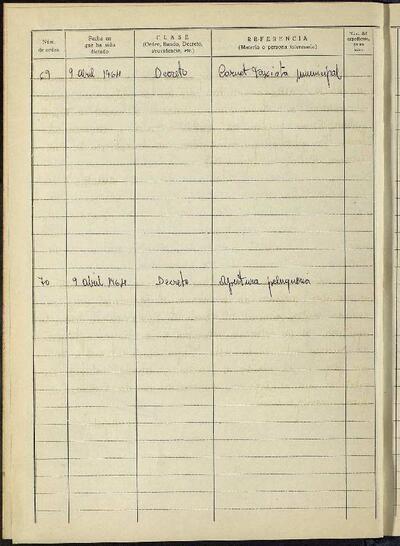 Núm. de orden
Fecha en que ha sido dictado
CLASE
(Orden, Bando, Decreto, providencia, etc.)
REFERENCIA
(Materia o persona interesada)
Núm. del expediente,
69 9 Abril 1964 Decreto Carnet Taxista municipal
70 9 abril 1964 Decreto Apertura peluqueria